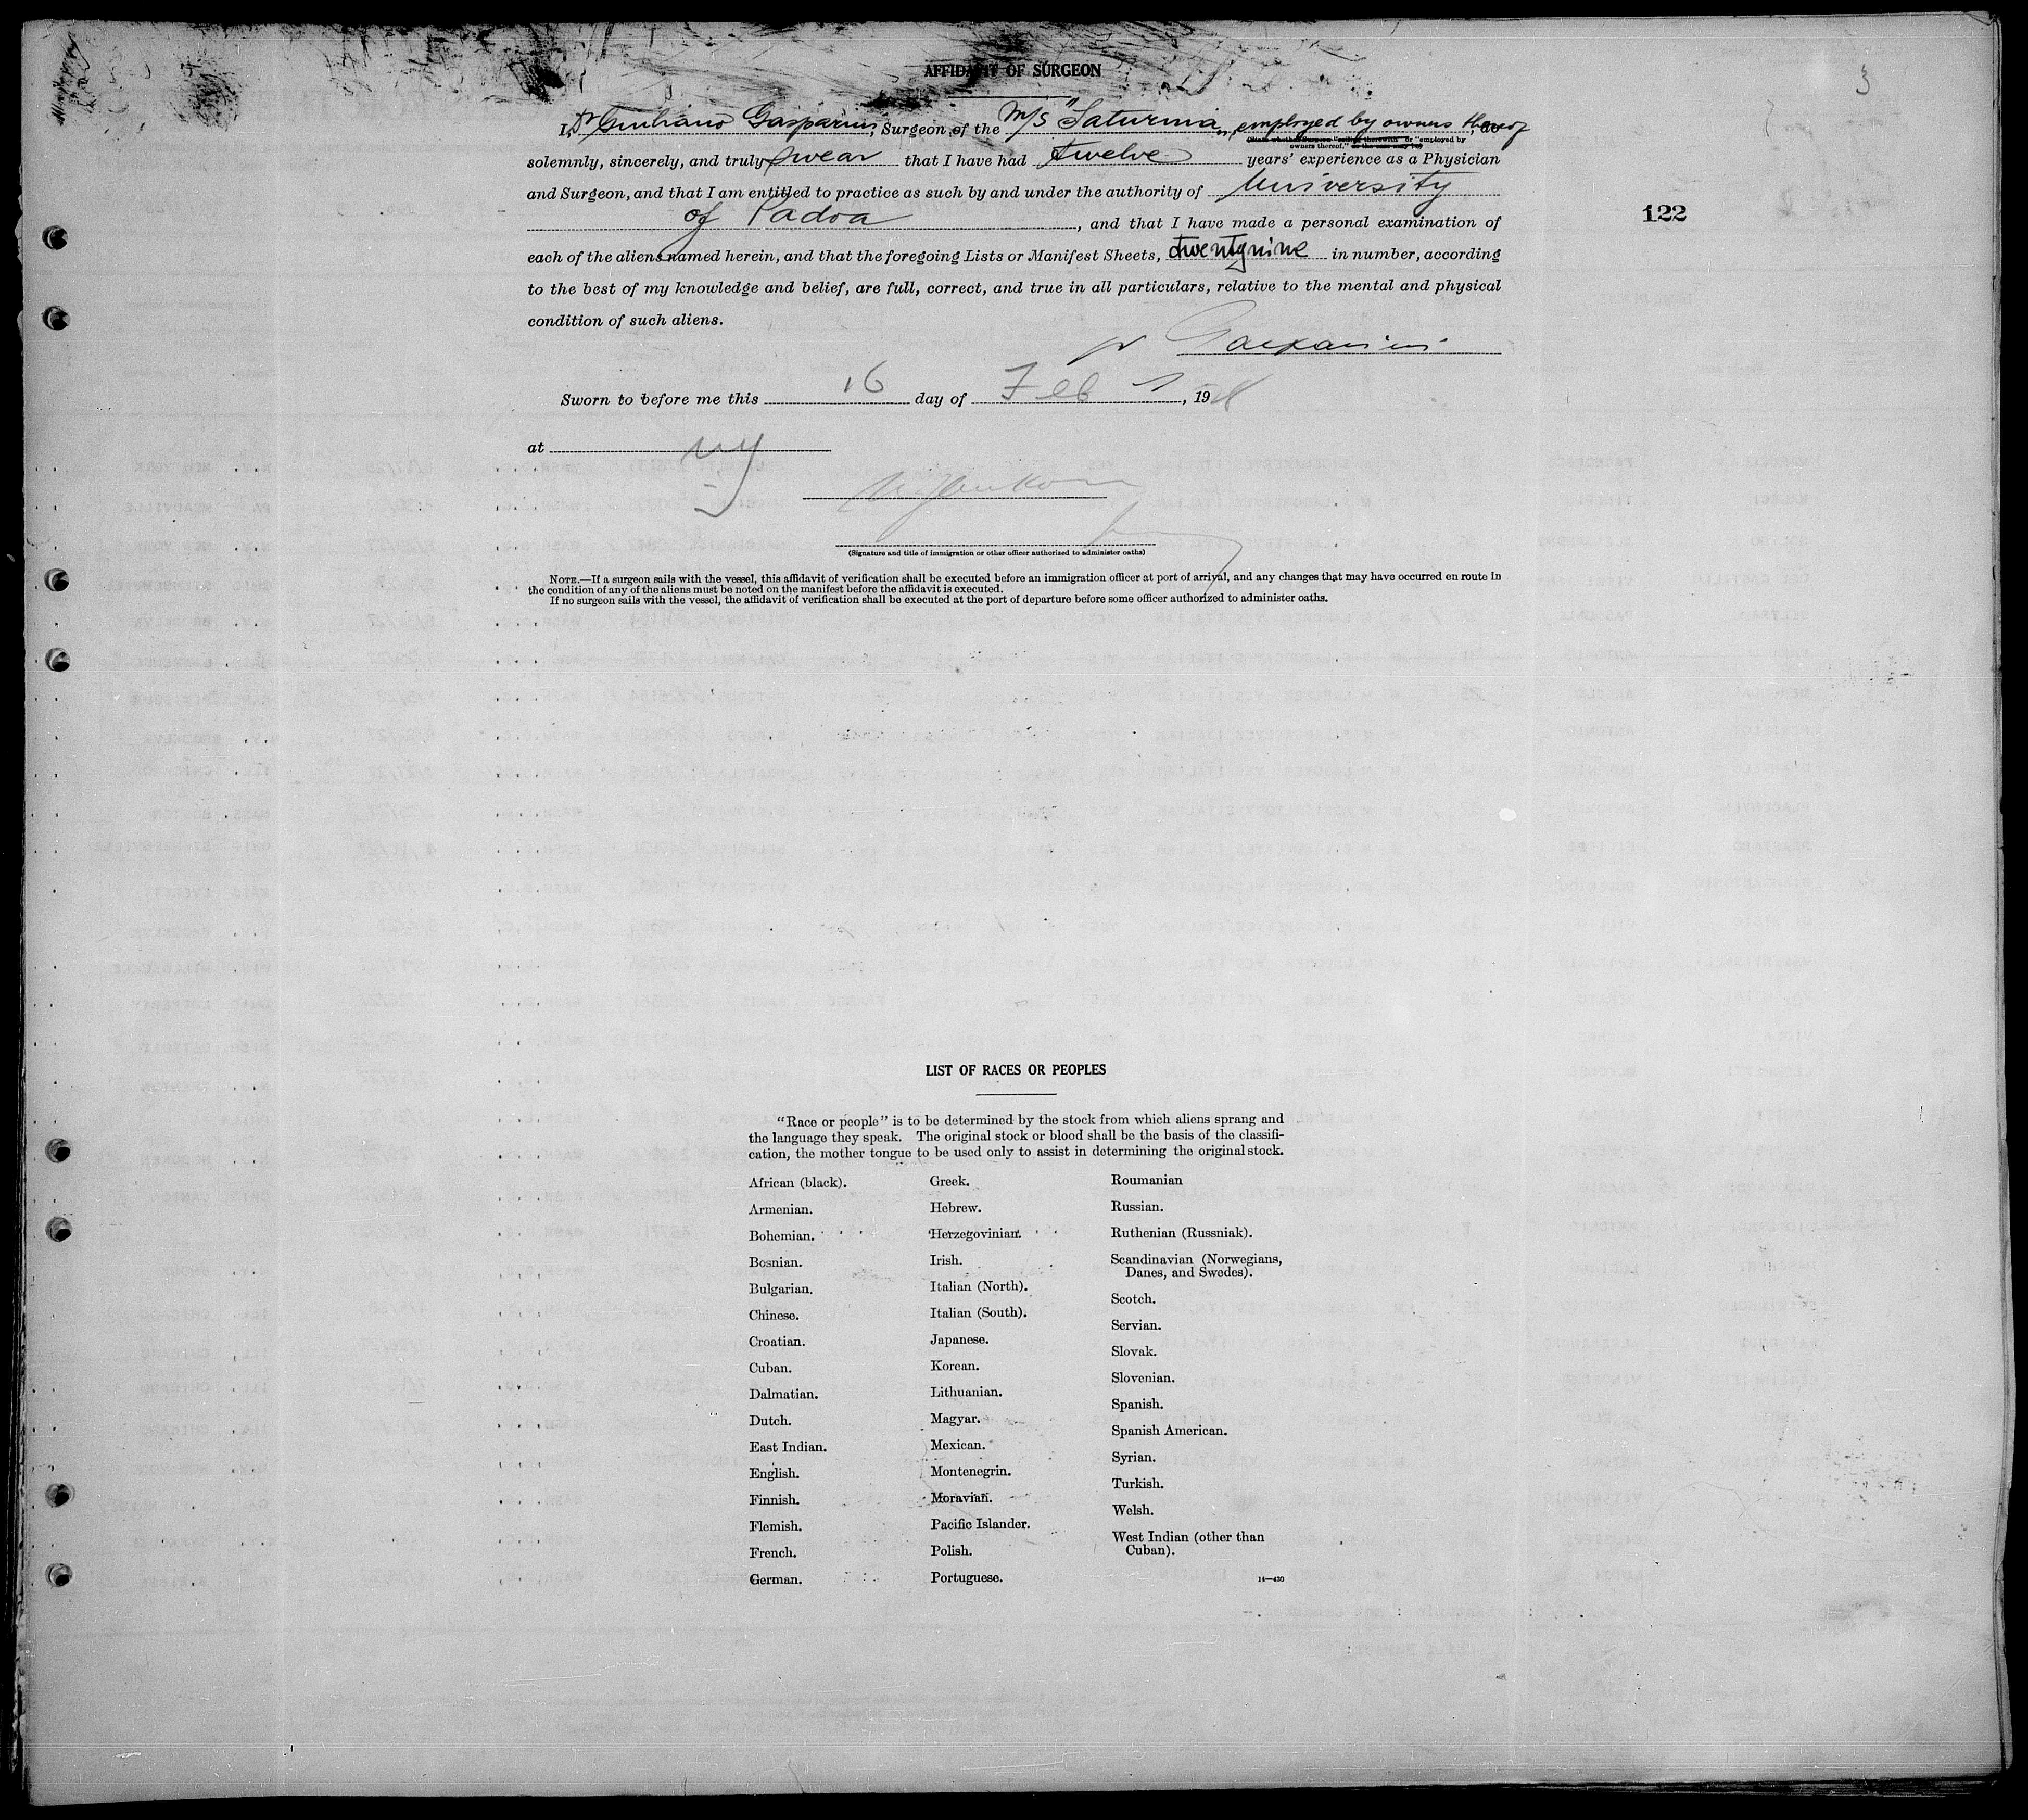 3
AFFIDAVIT OF SURGEON
I, Dr Giuliano Gasparini, Surgeon of the M/s "Saturnia", employed by owners thereof, do
(State whether Surgeon "sailing therewith" or "employed by
owners thereof," as the case may be)
solemnly, sincerely, and truly swear that I have had twelve years' experience as a Physician
and Surgeon, and that I am entitled to practice as such by and under the authority of University
of Padoa, and that I have made a personal examination of
122
each of the aliens named herein, and that the foregoing Lists or Manifest Sheets, twentynine in number, according
to the best of my knowledge and belief, are full, correct, and true in all particulars, relative to the mental and physical
condition of such aliens.
Dr Gasparini
Sworn to before me this 16 day of Feb, 1928
at NY
(Signature and title of immigration or other officer authorized to administer oaths)
NOTE.—If a surgeon sails with the vessel, this affidavit of verification shall be executed before an immigration officer at port of arrival, and any changes that may have occurred en route in
the condition of any of the aliens must be noted on the manifest before the affidavit is executed.
If no surgeon sails with the vessel, the affidavit of verification shall be executed at the port of departure before some officer authorized to administer oaths.
LIST OF RACES OR PEOPLES
"Race or people" is to be determined by the stock from which aliens sprang and
the language they speak. The original stock or blood shall be the basis of the classifi-
cation, the mother tongue to be used only to assist in determining the original stock.
African (black).
Armenian.
Bohemian.
Bosnian.
Bulgarian.
Chinese.
Croatian.
Cuban.
Dalmatian.
Dutch.
East Indian.
English.
Finnish.
Flemish.
French.
German.
Greek.
Hebrew.
Herzegovinian.
Irish.
Italian (North).
Italian (South).
Japanese.
Korean.
Lithuanian.
Magyar.
Mexican.
Montenegrin.
Moravian.
Pacific Islander.
Polish.
Portuguese.
Roumanian
Russian.
Ruthenian (Russniak).
Scandinavian (Norwegians,
Danes, and Swedes).
Scotch.
Servian.
Slovak.
Slovenian.
Spanish.
Spanish American.
Syrian.
Turkish.
Welsh.
West Indian (other than
Cuban).
14—430